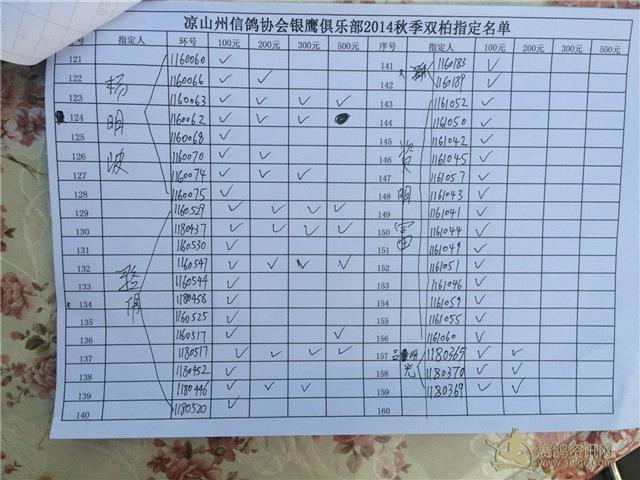 凉山州信鸽协会银鹰俱乐部2014秋季双柏指定名单
指定人 环号 100元 200元 300元 500元 序号 指定人 100元 200元 300元 500元
121 1160060 ✓ 141 1160183 ✓
122 1160066 ✓ ✓ 142 1160189 ✓
123 1160063 ✓ ✓ ✓ ✓ 143 1161052 ✓
124 1160062 ✓ ✓ ✓ 144 1161050 ✓
125 1160068 ✓ 145 1161042 ✓
126 1160070 ✓ ✓ 146 1161045 ✓
127 1160074 ✓ ✓ ✓ 147 1161057 ✓
128 1160075 ✓ 148 1161043 ✓
129 1160529 ✓ ✓ ✓ ✓ 149 1161041 ✓
130 1180437 ✓ ✓ ✓ ✓ 150 1161044 ✓
131 1160530 ✓ 151 1161049 ✓
132 1160547 ✓ ✓ ✓ ✓ 152 1161051 ✓
133 1160544 ✓ 153 1161046 ✓
134 1180458 ✓ 154 1161059 ✓
135 1160525 ✓ 155 1161055 ✓
136 1160517 ✓ 156 1161060 ✓
137 1180517 ✓ ✓ ✓ ✓ 157 1180365 ✓ ✓
138 1180452 ✓ 158 1180370 ✓ ✓
139 1180446 ✓ ✓ ✓ 159 1180369 ✓ ✓
140 1180520 ✓ 160
杨明
赛鸽资讯网
www.saige.com